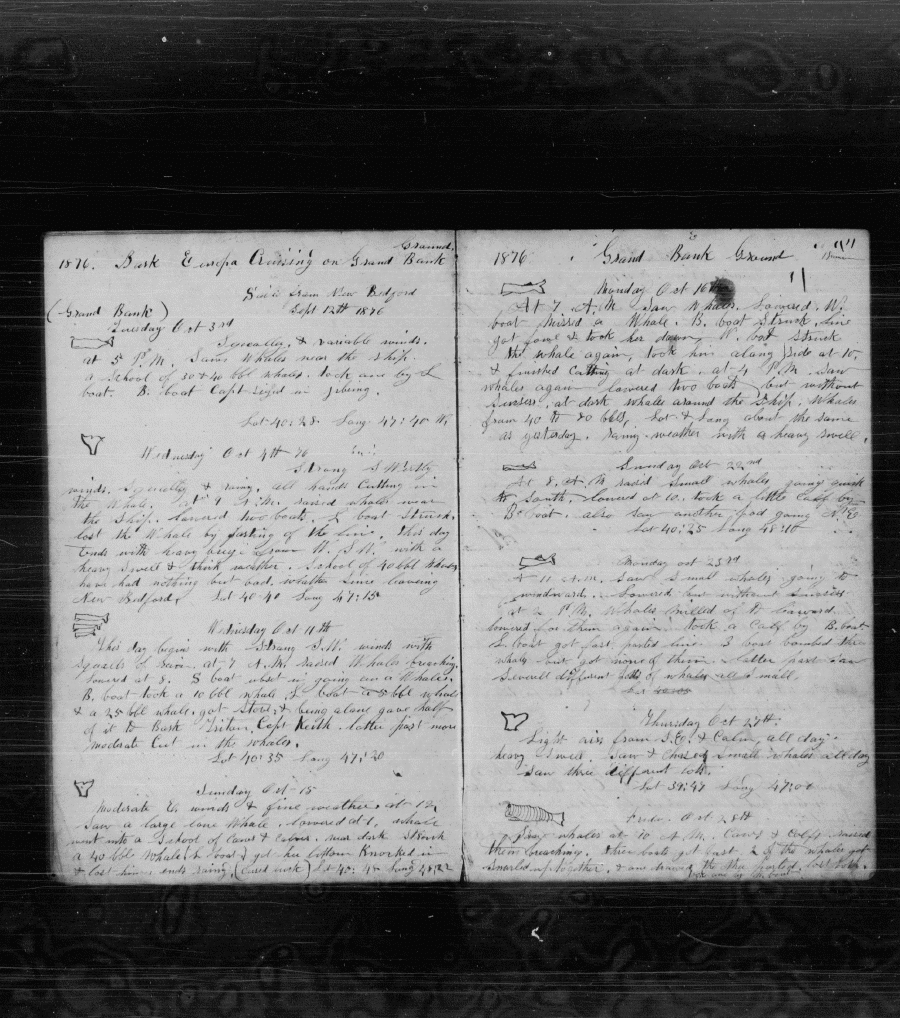 Ground.
1876. Bark Europa Cruising on Grand Bank
Since from New Bedford
Sept 12th 1876
(Grand Bank)
Tuesday Oct 3rd
Squally, & variable winds.
at 5 P.M. Saw whales near the ship.
a School of 30 & 40 bbl whales. took one by L
boat. B. boat Capt in jibing.
Lat 40:28 Long 47:40 W.
Wednesday Oct 4th 76
Strong S Westly
winds. Squally & rainy. all hands Cutting in
the Whale. At 9 A.M. raised whales near
the Ship. lowered two boats. L boat Struck.
lost the Whale by parting of the line. This day
Ends with heavy from W. S.W. with a
heavy Swell & thick weather. School of 40 bbl
have had nothing but bad weather Since leaving
New Bedford. Lat 40-40 Long 47:15
Wednesday Oct 11th
This day begins with Strong S.W. winds with
Squalls of rain. at 7 A.M. raised Whales breaching.
lowered at 8. S boat upset in going on a Whale.
B. boat took a 10 bbl whale L boat a 5 bbl whale
& a 25 bbl whale. got Stove & being alone gave half
of it to Bark Triton, Capt Keith. latter part more
moderate Cut in the whales.
Lat 40:35 Long 47:20
Sunday Oct 15
Moderate winds & fine weather. at 12
Saw a large lone Whale. lowered at 1. whale
went into a School of Cows & Calves. near dark Struck
a 40 bbl Whale L boat got her bottom Knocked in
& lost ends rainy. Lat 40:45 Long
1876 Grand Bank Ground
Monday Oct 16th
At 7. A.M. Saw Whales. Lowered. W.
boat missed a Whale. B. boat Struck line
got foul & took her down. W. boat Struck
the whale again, took him along Side at 10,
& finished Cutting at dark. at 4 P.M. Saw
whales again lowered two boats but without
Success, at dark whales around the Ship. Whales
from 40 to 80 bbls, Lat & Long about the same
as yesterday. rainy weather with a heavy Swell.
Sunday Oct 22nd
At 8. A.M. raised Small whales going quick
to South. lowered at 10. took a little Calf by
B. boat. also saw another pod going N.E
Lat 40:25 Long 48:10
Monday oct 23rd
At 11 A.M. Saw Small whales going to
windward. Lowered but without Success
at 2 P.M. Whales milled of to Leward
lowered for them again. took a Calf by B. boat
L boat got fast parted line. B boat bombed the
whale but got none of them. latter part Saw
Severall different lots of whales all Small.
Thursday Oct 27th.
Light airs from S.E. & Calm, all day.
heavy Swell. Saw & Chased Small whales all day
Saw three different lots.
Lat 39:47 Long 47:00
Oct 28th
Saw whales at 10 A.M. Cows & Calfs
them breaching. three boats got fast. 2 of the whales got
Snarled up together. the line parted, lost both.
took one by boat